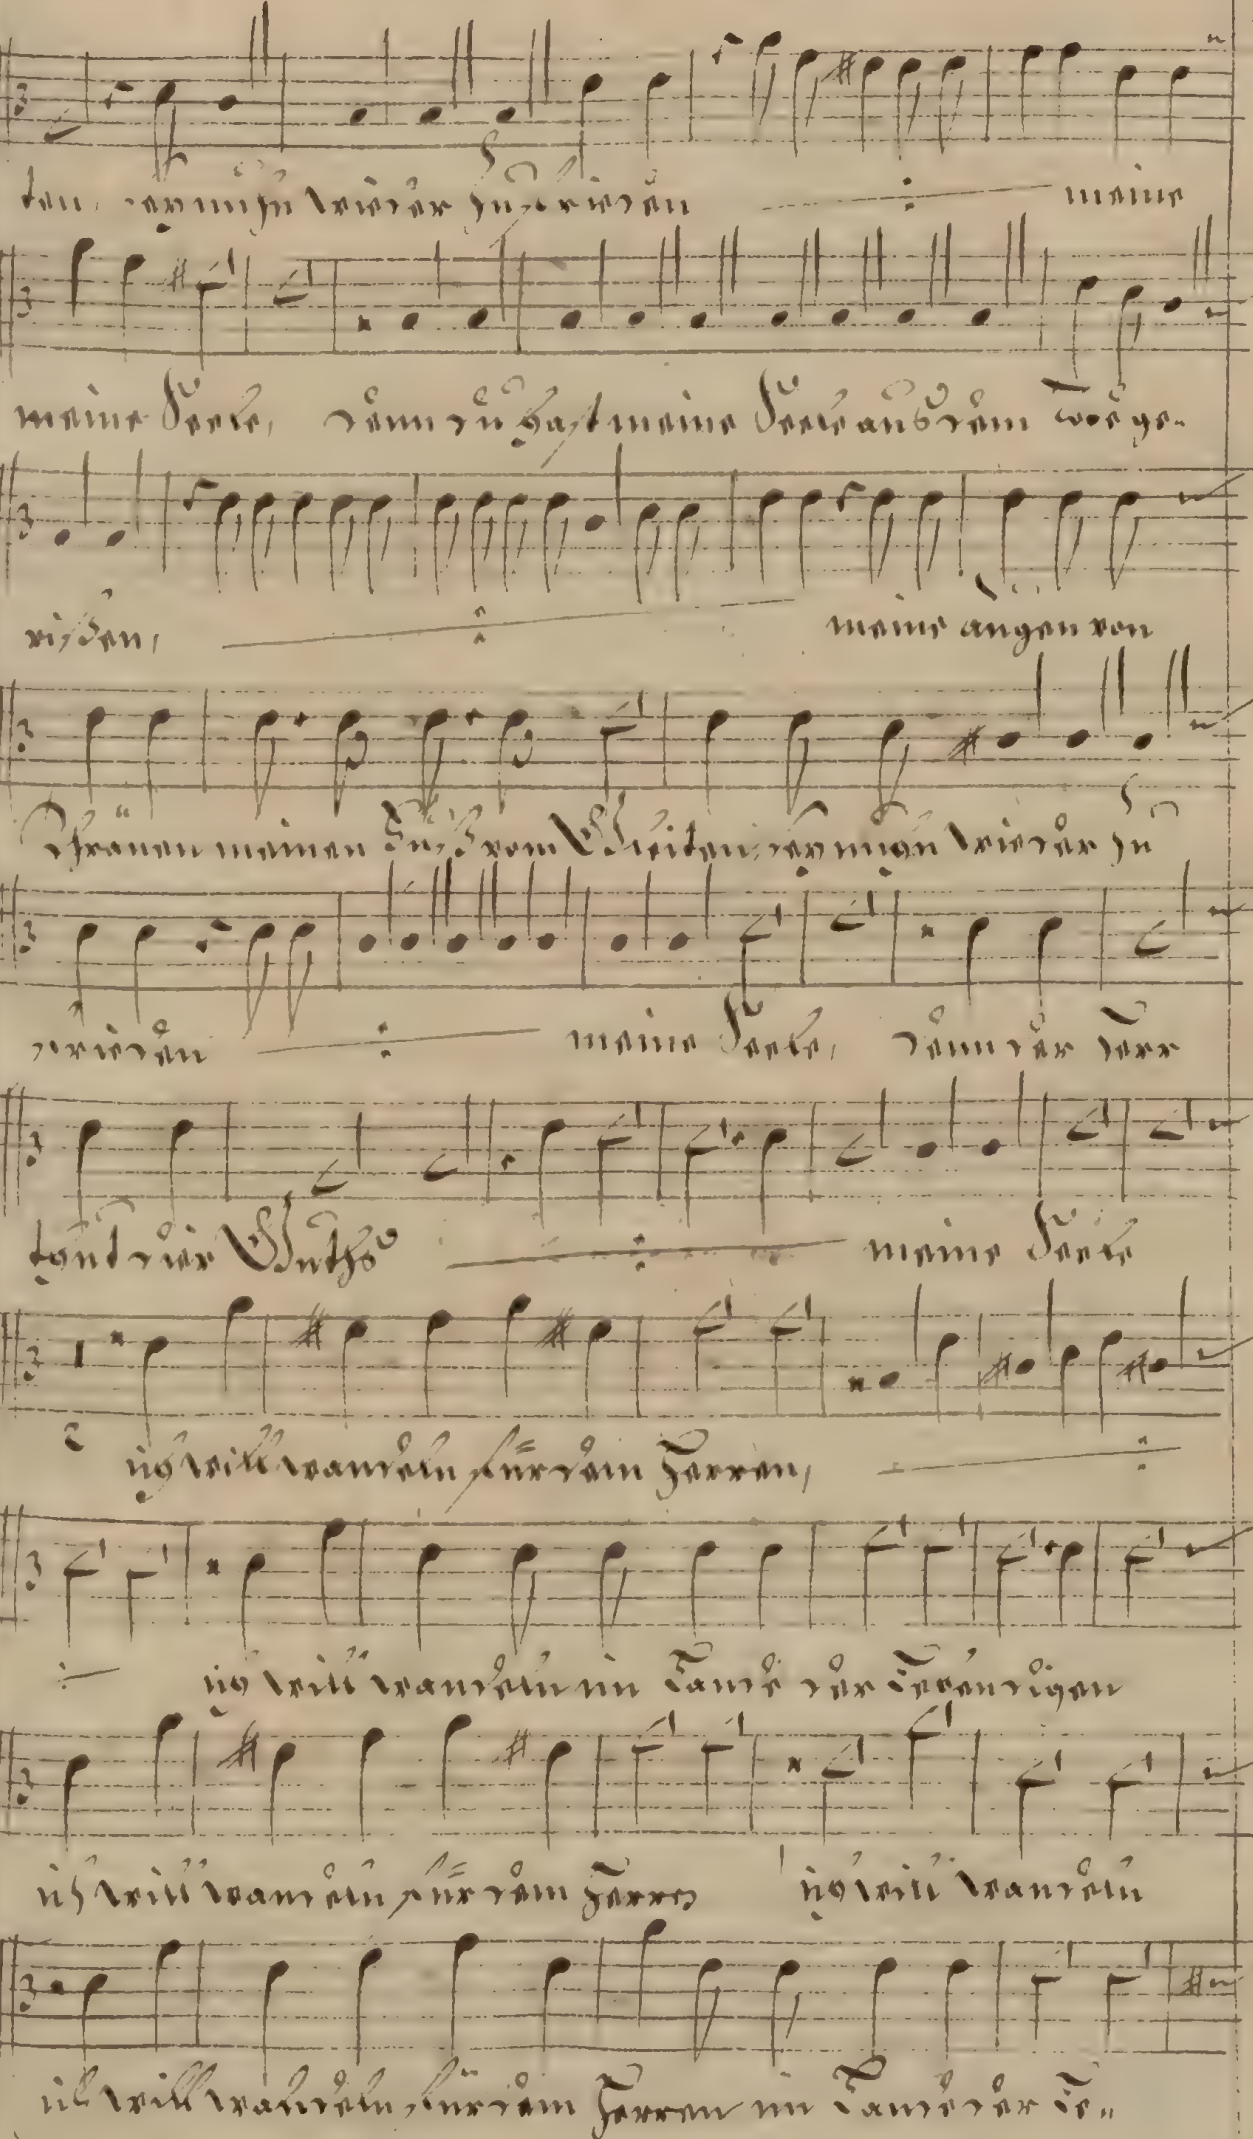 ten, sey nuhn wieder zu frieden ÷ meine
meine Seele, denn du hast meine Seele auß dem Tode ge-
rißen, ÷ meine augen von
Thränen meinen Fuß vom Gleiten, sey nuhn wieder zu
frieden ÷ meine Seele, denn der Herr
thut dier Guths ÷ meine Seele
ich will wandeln für dem Herren, ÷
÷ ich will wandeln im Lande der Lebendigen
ich will wandeln für dem Herren ich will wandeln
ich will wandeln für dem Herren im Lande der Le-